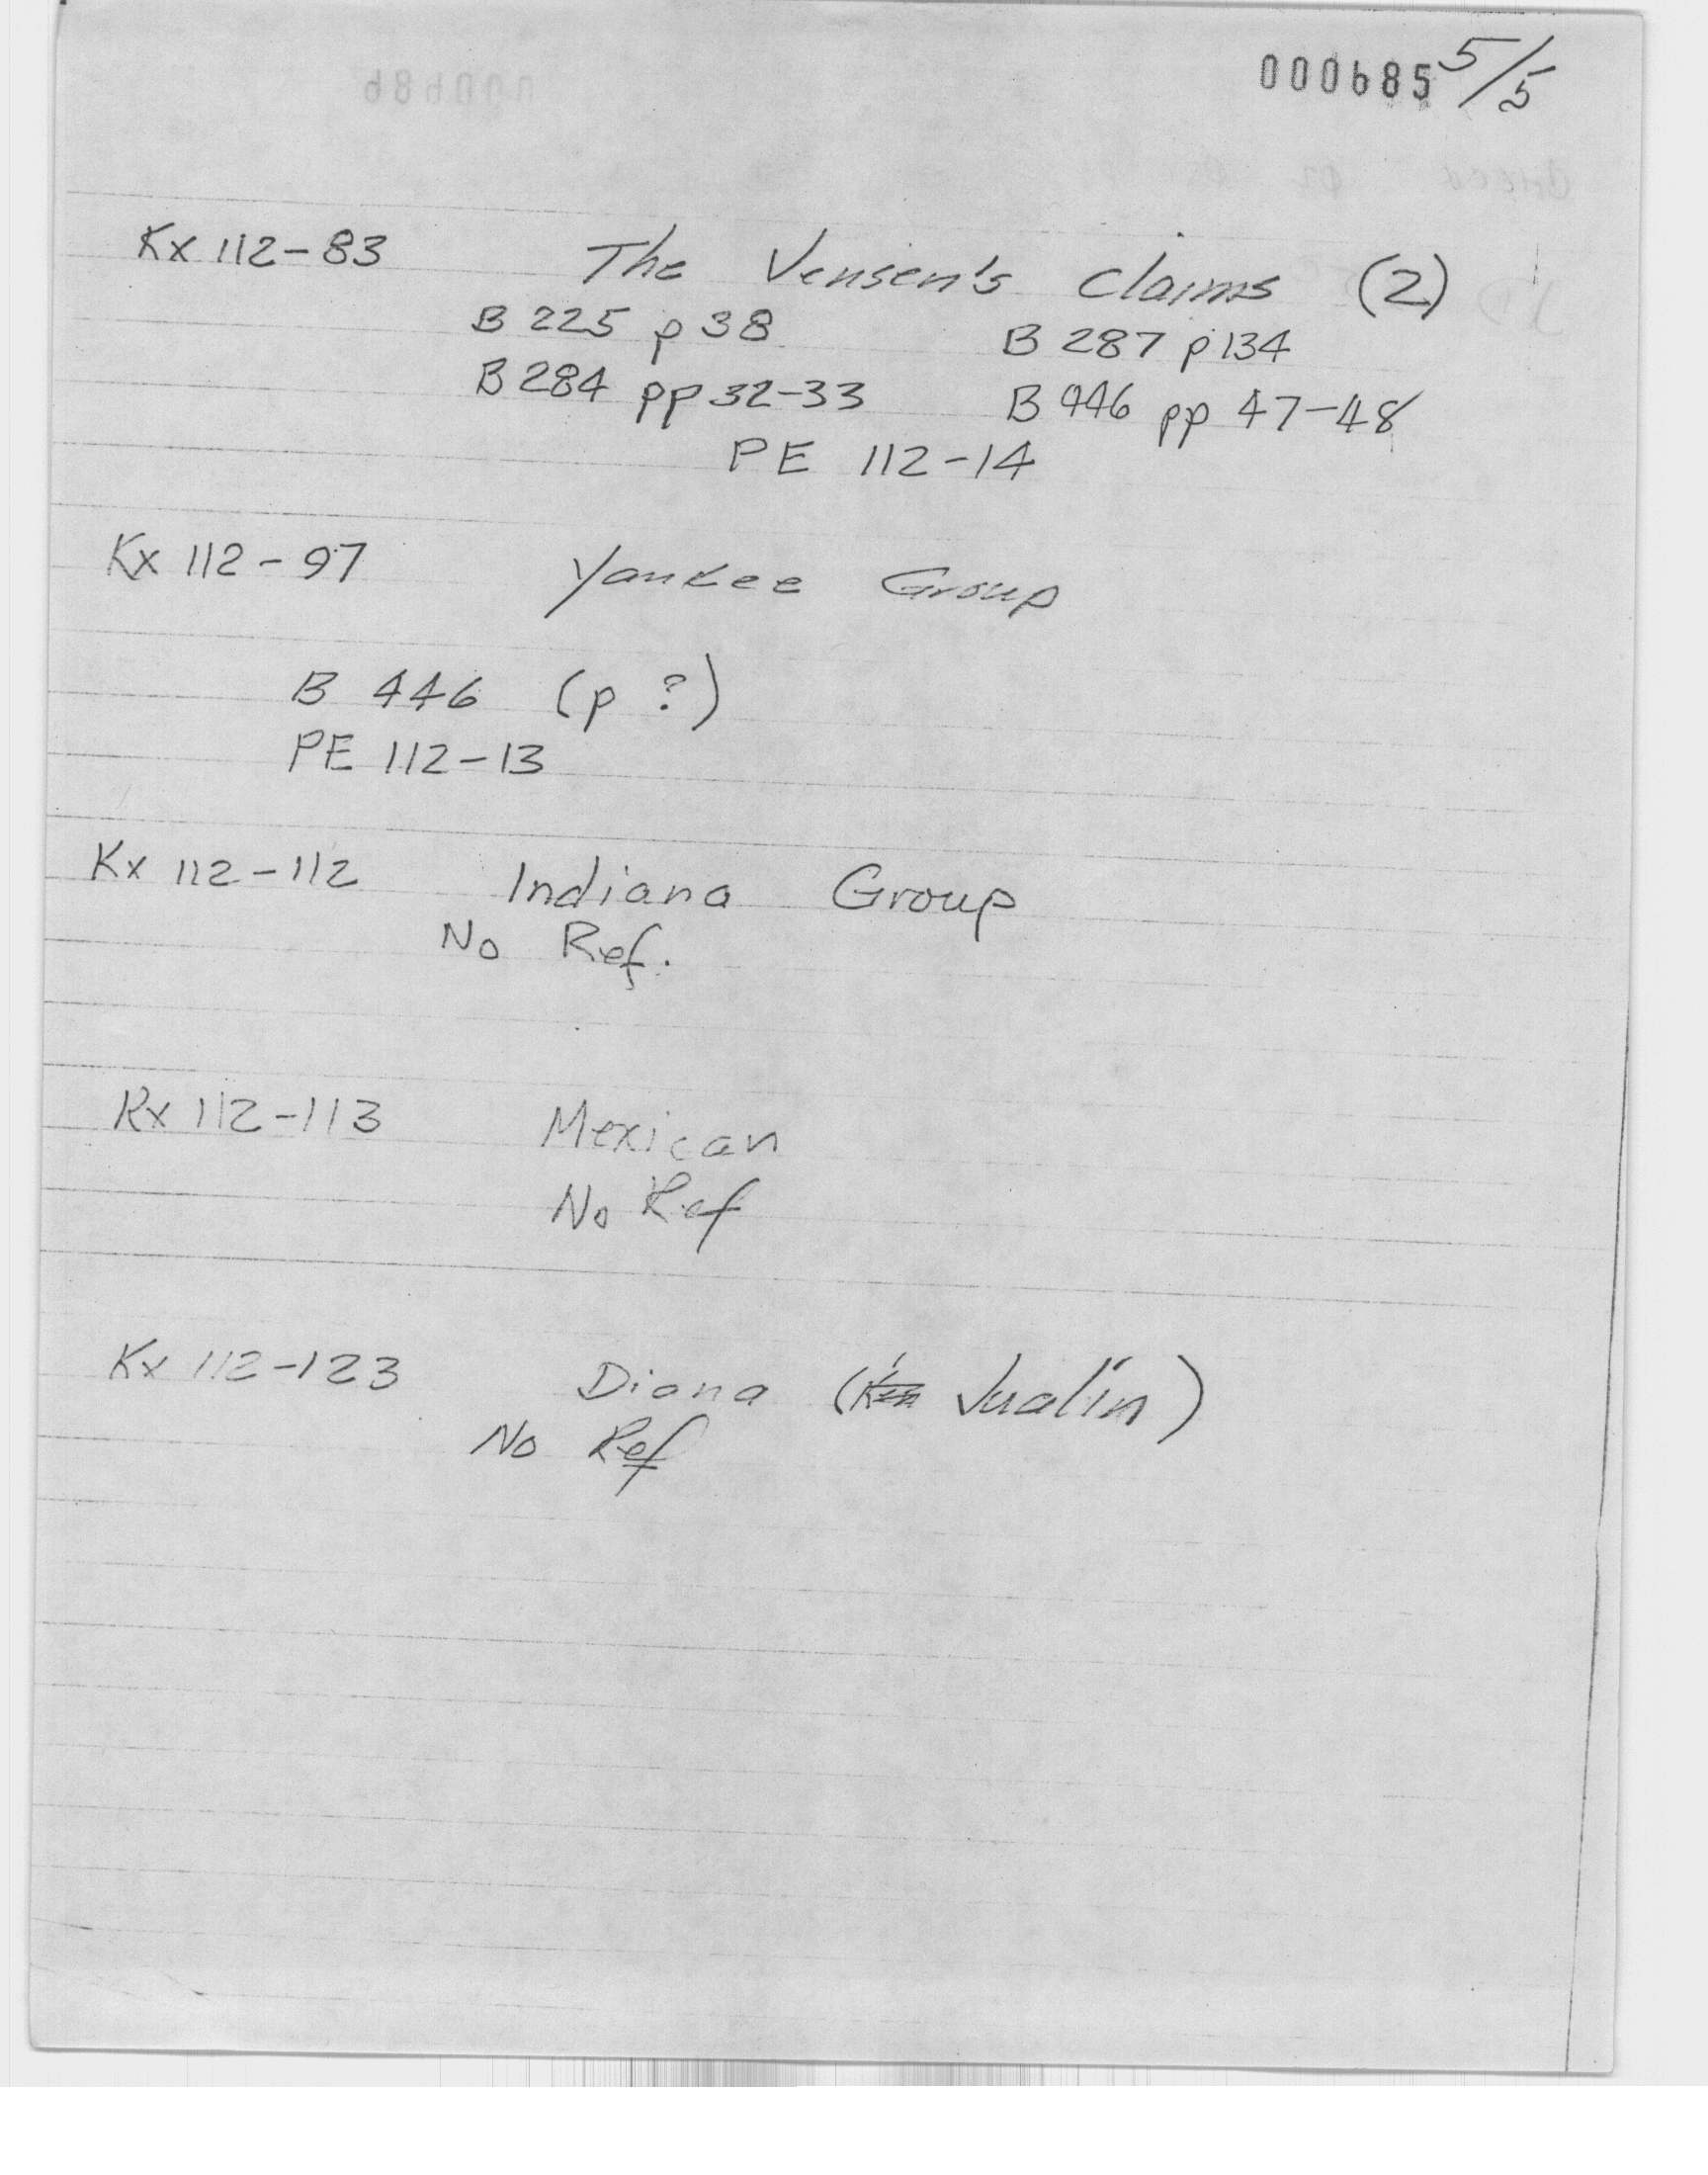 000685 5/5
Kx 112-83 The Vensen's Claims (2)
B 225 p 38 B 287 p 134
B 284 pp 32-33 B 446 pp 47-48
PE 112-14
Kx 112-97 Yankee Group
B 446 (p ?)
PE 112-13
Kx 112-112 Indiana Group
No Ref.
Kx 112-113 Mexican
No Ref
Kx 112-123 Diana (Jualin)
No Ref